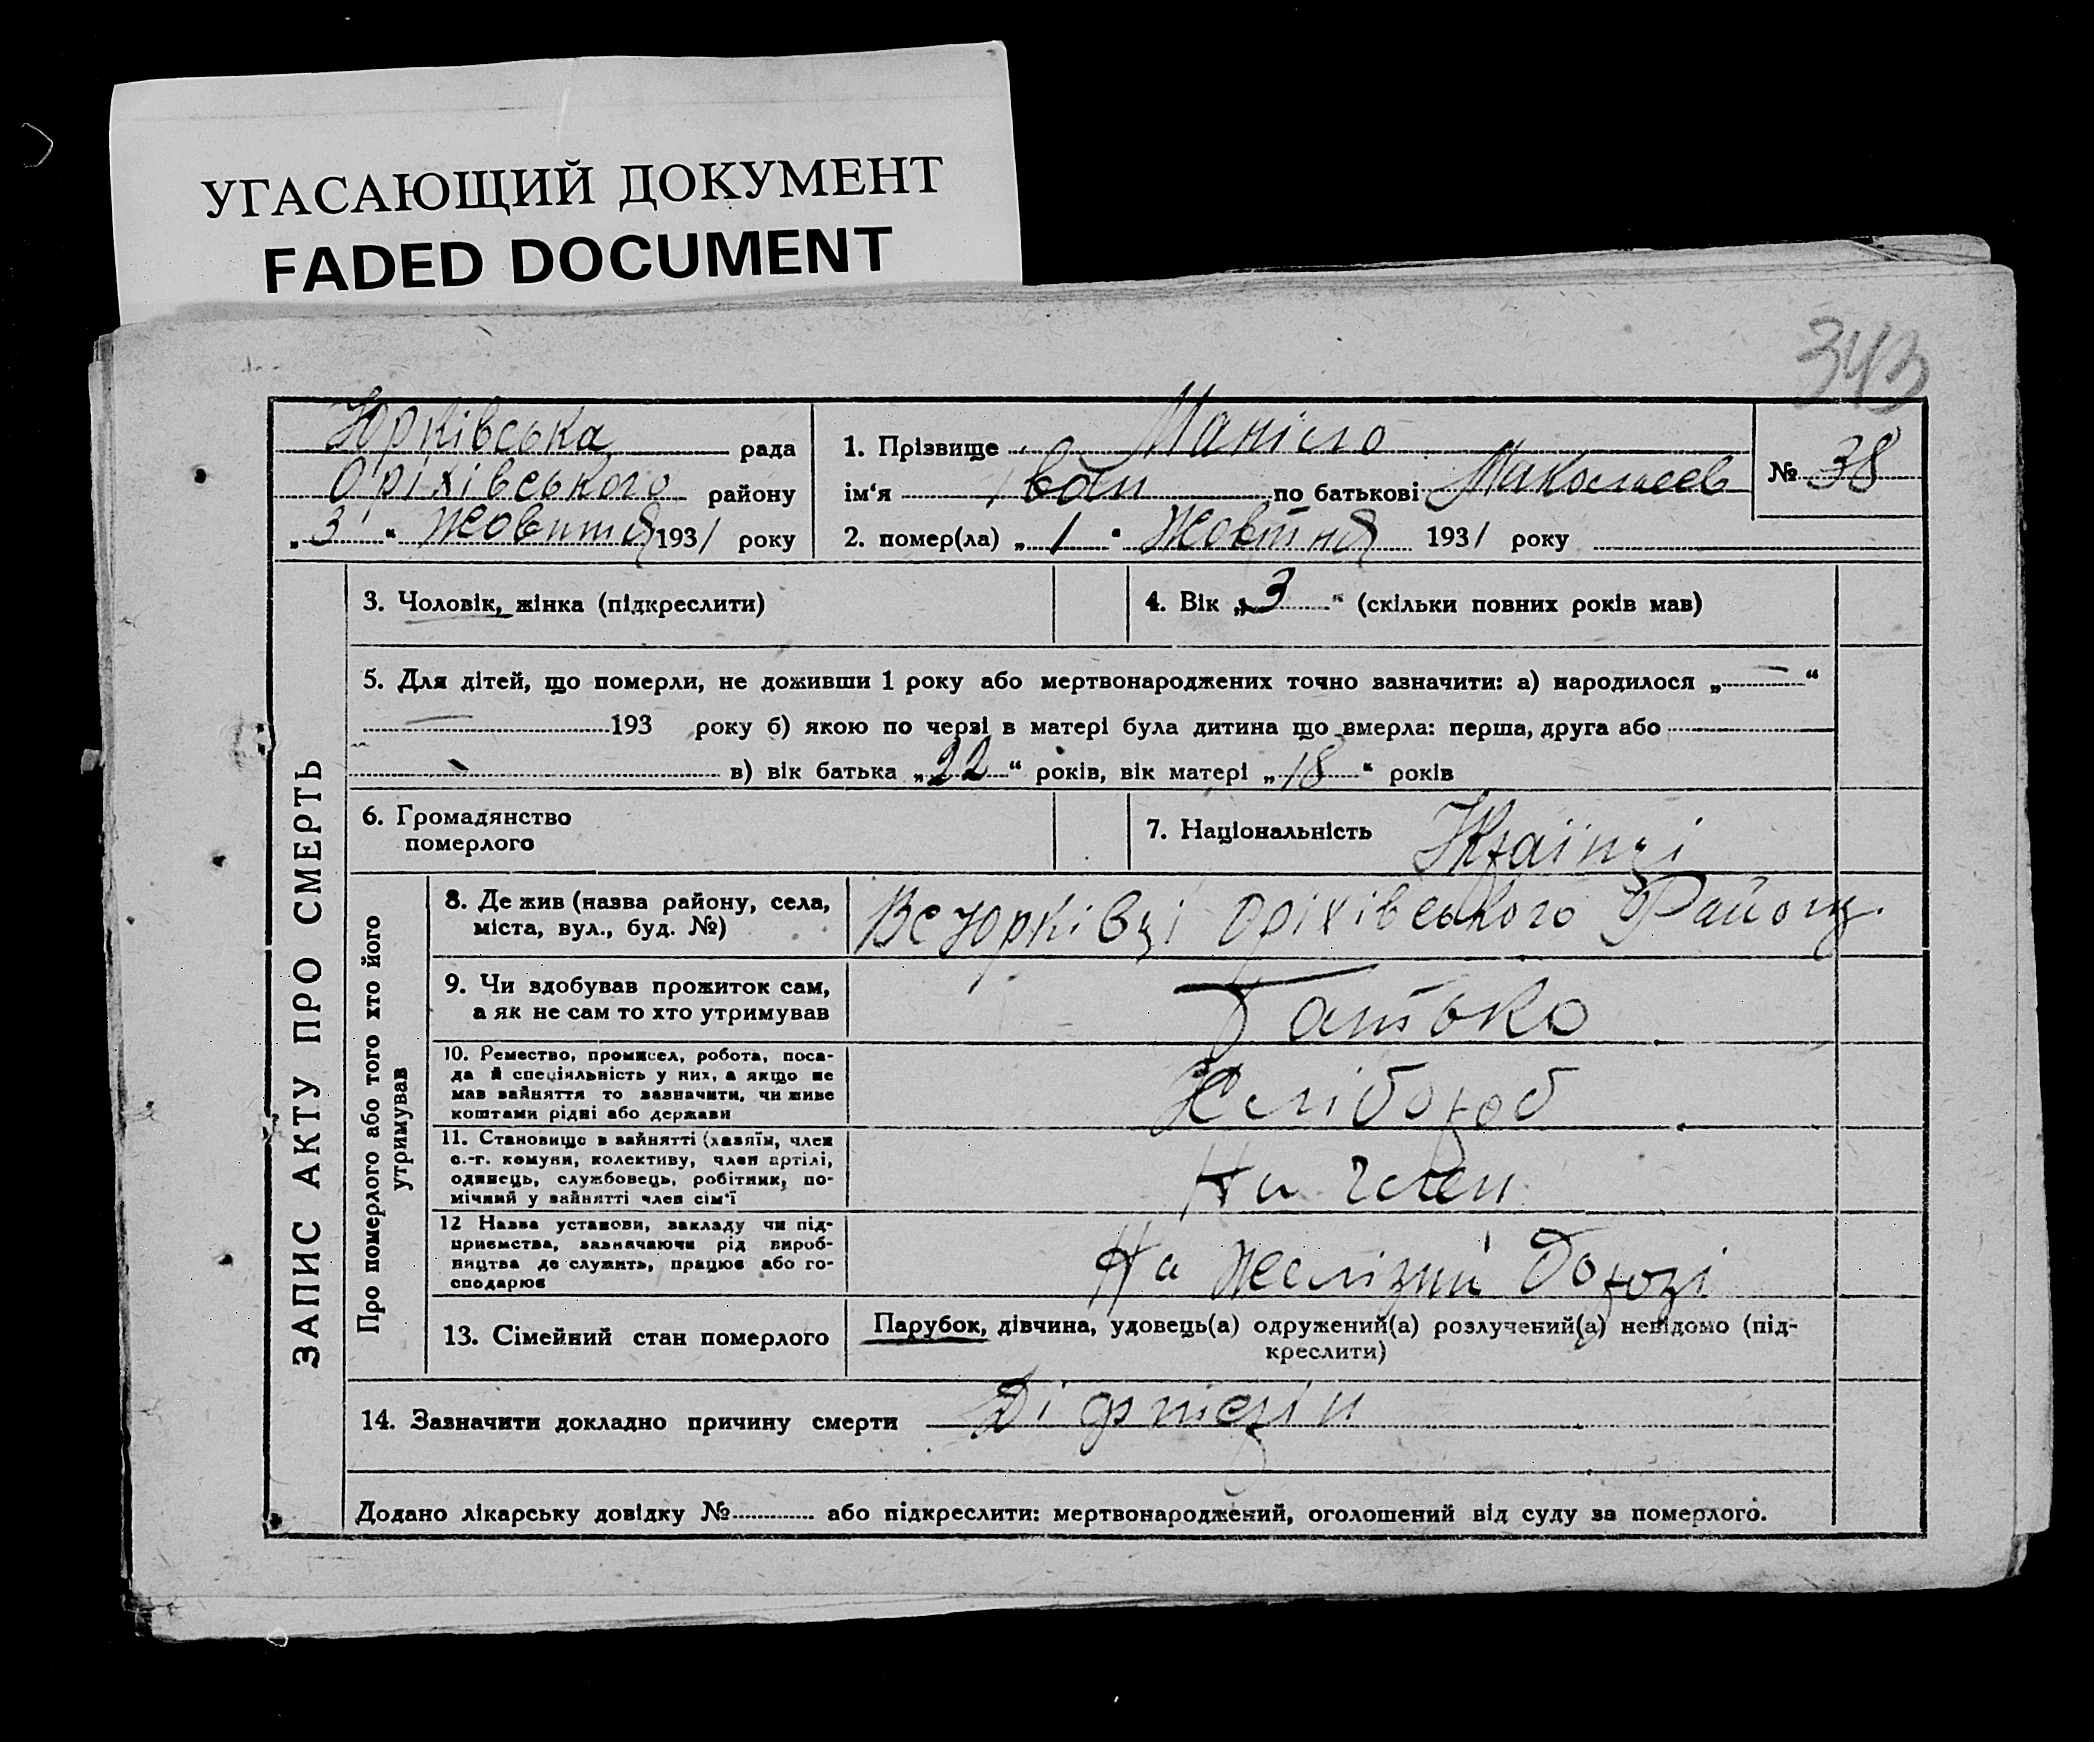 УГАСАЮЩИЙ ДОКУМЕНТ
FADED DOCUMENT
343
Юрківська рада
Оріхівського району
„ 3 “ Жовтня 1931 року
1. Прізвище Манісло
ім‘я Іван по батькові
2. помер(ла) „ 1 “ Жовтня 1931 року
№ 38
ЗАПИС АКТУ ПРО СМЕРТЬ
3. Чоловік, жінка (підкреслити)
4. Вік „ 3 “ (скільки повних років мав)
5. Для дітей, що померли, не доживши 1 року або мертвонароджених точно зазначити: а) народилося „ — “
— 193 року б) якою по черзі в матері була дитина що вмерла: перша, друга або
в) вік батька „ 22 “ років, вік матері „ 18 “ років
6. Громадянство
померлого
7. Національність Українці
Про померлого або того хто його
утримував
8. Де жив (назва району, села,
міста, вул., буд. №)
Вс Юрківці Оріхівського Району.
9. Чи здобував прожиток сам,
а як не сам то хто утримував
Батько
10. Ремество, промисел, робота, поса-
да й спеціяльність у них, а якщо не
мав зайняття то зазначити, чи живе
коштами рідні або держави
Хлібороб
11. Становище в зайнятті (хазяїн, член
с.-г. комуни, колективу, член артілі,
одинець, службовець, робітник, по-
мічний у зайнятті член сім‘ї
На член
12 Назва установи, закладу чи під-
приємства, зазначаючи рід вироб-
ництва де служить, працює або го-
сподарює
На Желізній Дорозі
13. Сімейний стан померлого
Парубок, дівчина, удовець(а) одружений(а) розлучений(а) невідомо (під-
креслити)
14. Зазначити докладно причину смерти Діфтерін
Додано лікарську довідку № або підкреслити: мертвонароджений, оголошений від суду за померлого.